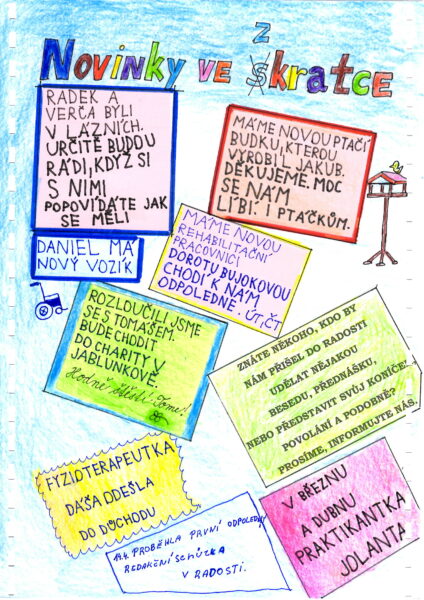 Novinky ve zkratce
RADEK A
VERČA BYLI
V LÁZNÍCH.
URČITĚ BUDOU
RÁDI, KDYŽ SI
S NIMI
POPOVÍDÁTE JAK
SE MĚLI
MÁME NOVOU PTAČÍ
BUDKU, KTEROU
VYROBIL JAKUB.
DĚKUJEME. MOC
SE NÁM
LÍBÍ. I PTÁČKŮM.
DANIEL MÁ
NOVÝ VOZÍK
MÁME NOVOU
REHABILITAČNÍ
PRACOVNICI
DOROTU BUJOKOVOU
CHODÍ K NÁM
ODPOLEDNE. ÚT, ČT
ROZLOUČILI JSME
SE S TOMÁŠEM.
BUDE CHODIT
DO CHARITY V
JABLUNKOVĚ.
Hodně štěstí Tome!
ZNÁTE NĚKOHO, KDO BY
NÁM PŘIŠEL DO RADOSTI
UDĚLAT NĚJAKOU
BESEDU, PŘEDNÁŠKU,
NEBO PŘEDSTAVIT SVŮJ KONÍČEK,
POVOLÁNÍ A PODOBNĚ?
PROSÍME, INFORMUJTE NÁS.
FYZIOTERAPEUTKA
DÁŠA ODEŠLA
DO DŮCHODU
19.4. PROBĚHLA PRVNÍ ODPOLEDNÍ
REDAKČNÍ SCHŮZKA
V RADOSTI.
V BŘEZNU
A DUBNU
PRAKTIKANTKA
JOLANTA